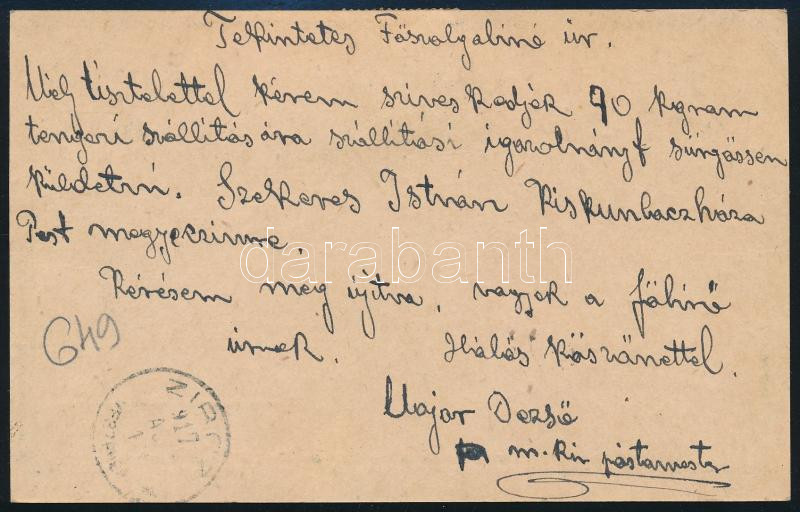 Tekintetes Főszolgabiró úr.
Mély tisztelettel kérem sziveskedjék 90 kgram
tengeri szállitására szállitási igazolványt sürgössen
küldetni. Szekeres István Kiskunlaczháza
Pest megye czimre.
Kérésem meg újitva, vagyok a főbiró
úrnak. Hálás köszönettel.
Major Dezső
m. kir postamester
649
ZIRC
917
darabanth